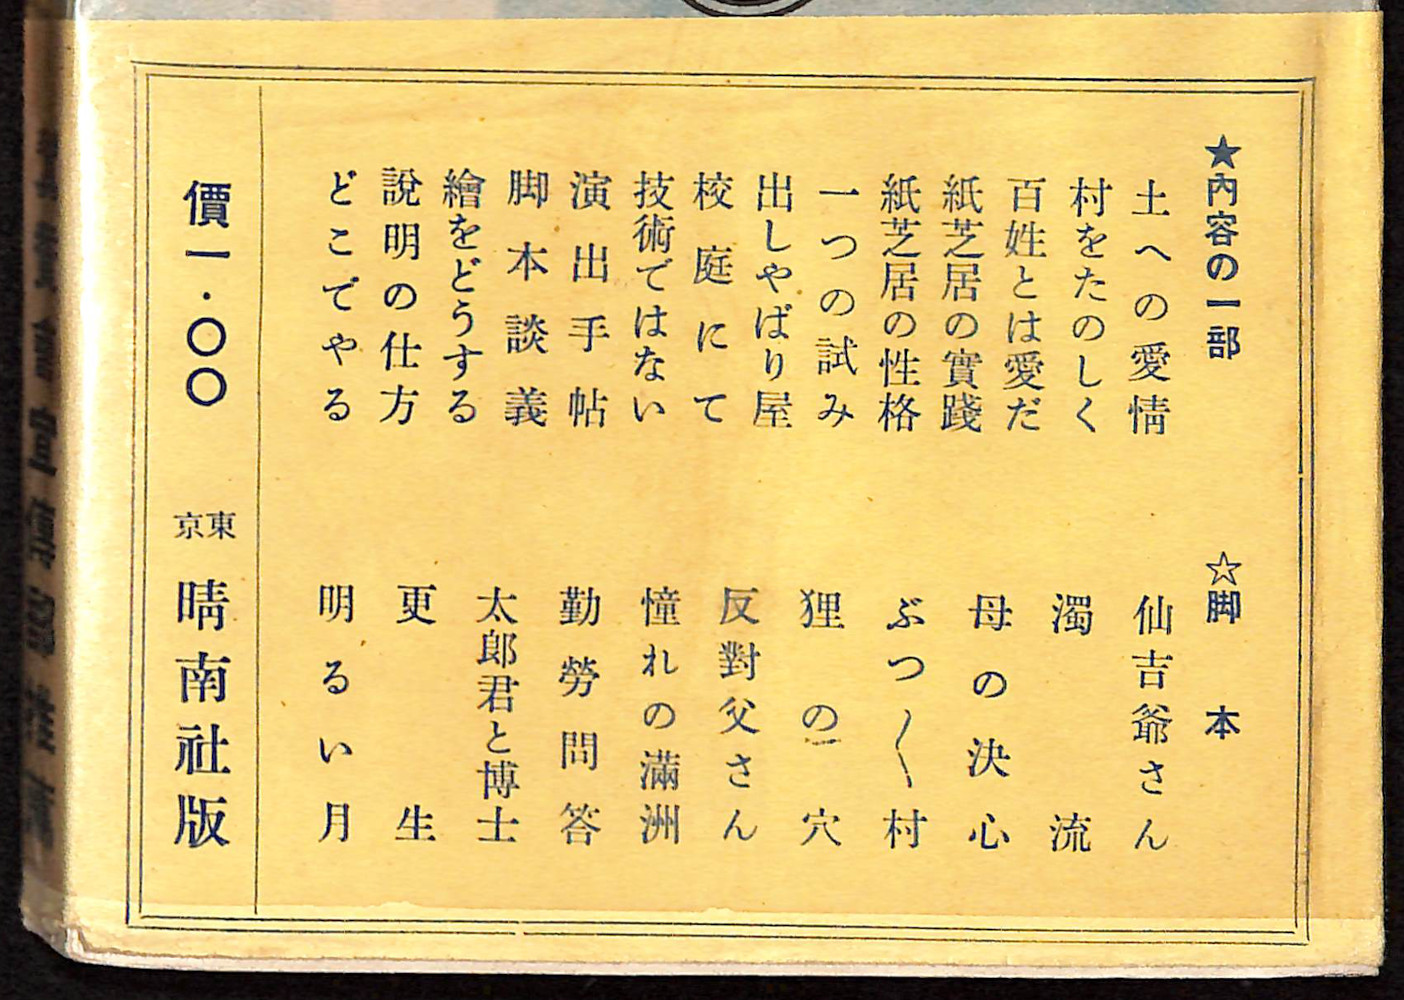 ★內容の一部
土への愛情
村をたのしく
百姓とは愛だ
紙芝居の實踐
紙芝居の性格
一つの試み
出しやばり屋
校庭にて
技術ではない
演出手帖
脚本談義
繪をどうする
說明の仕方
どこでやる
☆脚本
仙吉爺さん
濁流
母の決心
ぶつ〱村
狸の穴
反對父さん
憧れの滿洲
勤勞問答
太郞君と博士
更生
明るい月
價一・〇〇
東京
晴南社版